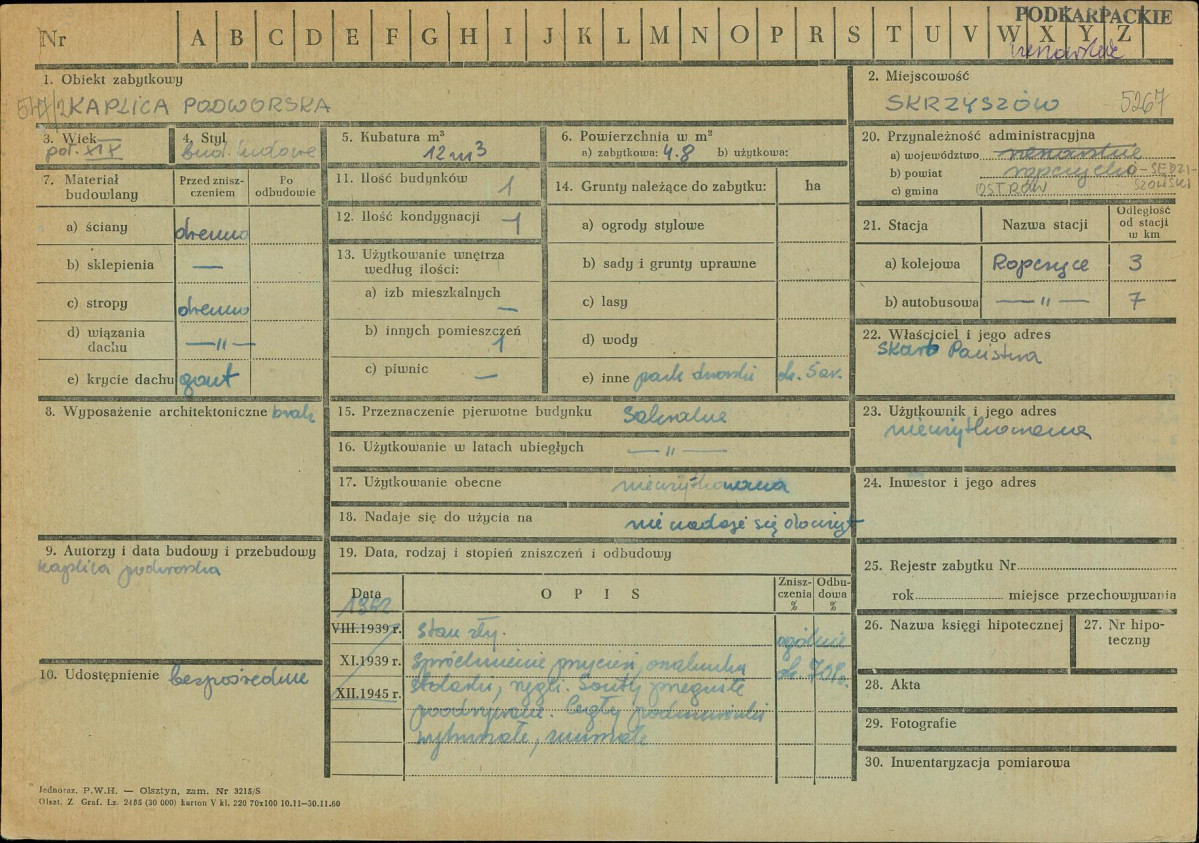 PODKARPACKIE
Nr A B C D E F G H I J K L M N O P R S T U V W X Y Z
1. Obiekt zabytkowy
KAPLICA PODWORSKA
2. Miejscowość
SKRZYSZÓW 5267
3. Wiek
poł. XIX
4. Styl
bud. ludowe
5. Kubatura m³
12 m³
6. Powierzchnia w m²
a) zabytkowa: 4.8 b) użytkowa:
7. Materiał budowlany
Przed zniszczeniem
Po odbudowie
a) ściany drewno
b) sklepienia —
c) stropy drewno
d) wiązania dachu — " —
e) krycie dachu gont
8. Wyposażenie architektoniczne brak
9. Autorzy i data budowy i przebudowy
kaplica podworska
10. Udostępnienie bezpośrednie
11. Ilość budynków 1
12. Ilość kondygnacji 1
13. Użytkowanie wnętrza
według ilości:
a) izb mieszkalnych —
b) innych pomieszczeń 1
c) piwnic —
14. Grunty należące do zabytku: ha
a) ogrody stylowe
b) sady i grunty uprawne
c) lasy
d) wody
e) inne park dworski ok. 5
15. Przeznaczenie pierwotne budynku sakralne
16. Użytkowanie w latach ubiegłych — " —
17. Użytkowanie obecne nieużytkowana
18. Nadaje się do użycia na nie nadaje się do
19. Data, rodzaj i stopień zniszczeń i odbudowy
Data O P I S Zniszczenia % Odbudowa %
VIII.1939 r. stan zły. ogólnie
XI.1939 r. Spróchnienie przyciesi, ok. 70%
XII.1945 r. rygli. Gonty
Cegły podmurówki
20. Przynależność administracyjna
a) województwo
b) powiat ropczycko-SĘDZI-
SZOWSKI
c) gmina OSTRÓW
21. Stacja Nazwa stacji Odległość od stacji w km
a) kolejowa Ropczyce 3
b) autobusowa — " — 7
22. Właściciel i jego adres
Skarb Państwa
23. Użytkownik i jego adres
nieużytkowana
24. Inwestor i jego adres
25. Rejestr zabytku Nr
rok miejsce przechowywania
26. Nazwa księgi hipotecznej
27. Nr hipoteczny
28. Akta
29. Fotografie
30. Inwentaryzacja pomiarowa
Jednoraz. P.W.H. — Olsztyn, zam. Nr 3215/S
Olszt. Z. Graf. Lz. 2485 (30 000) karton V kl. 220 70x100 10.11—30.11.60